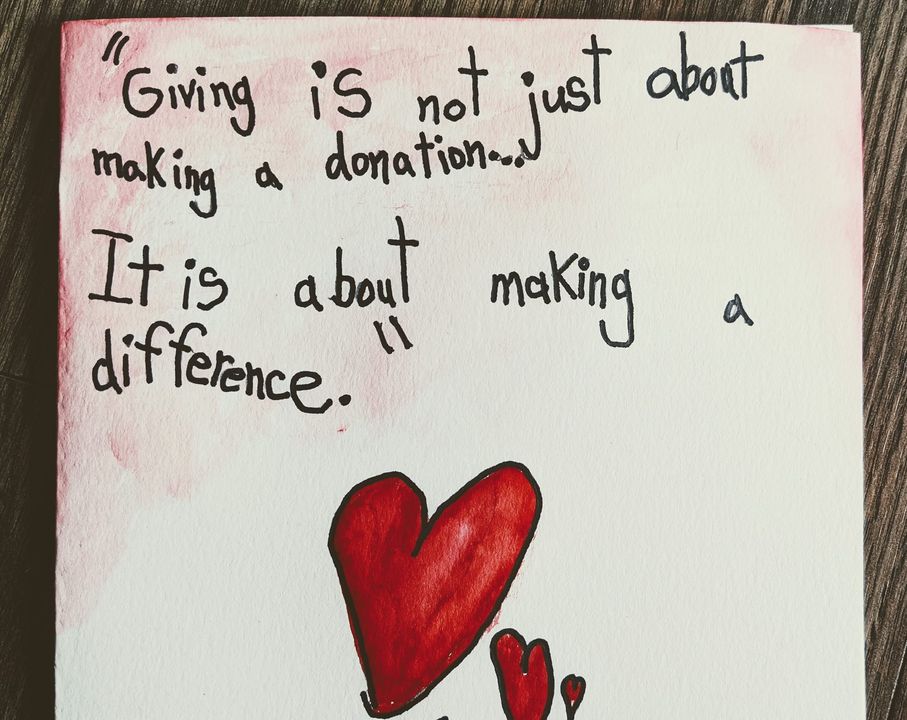 "Giving is not just about
making a donation...
It is about making a
difference."